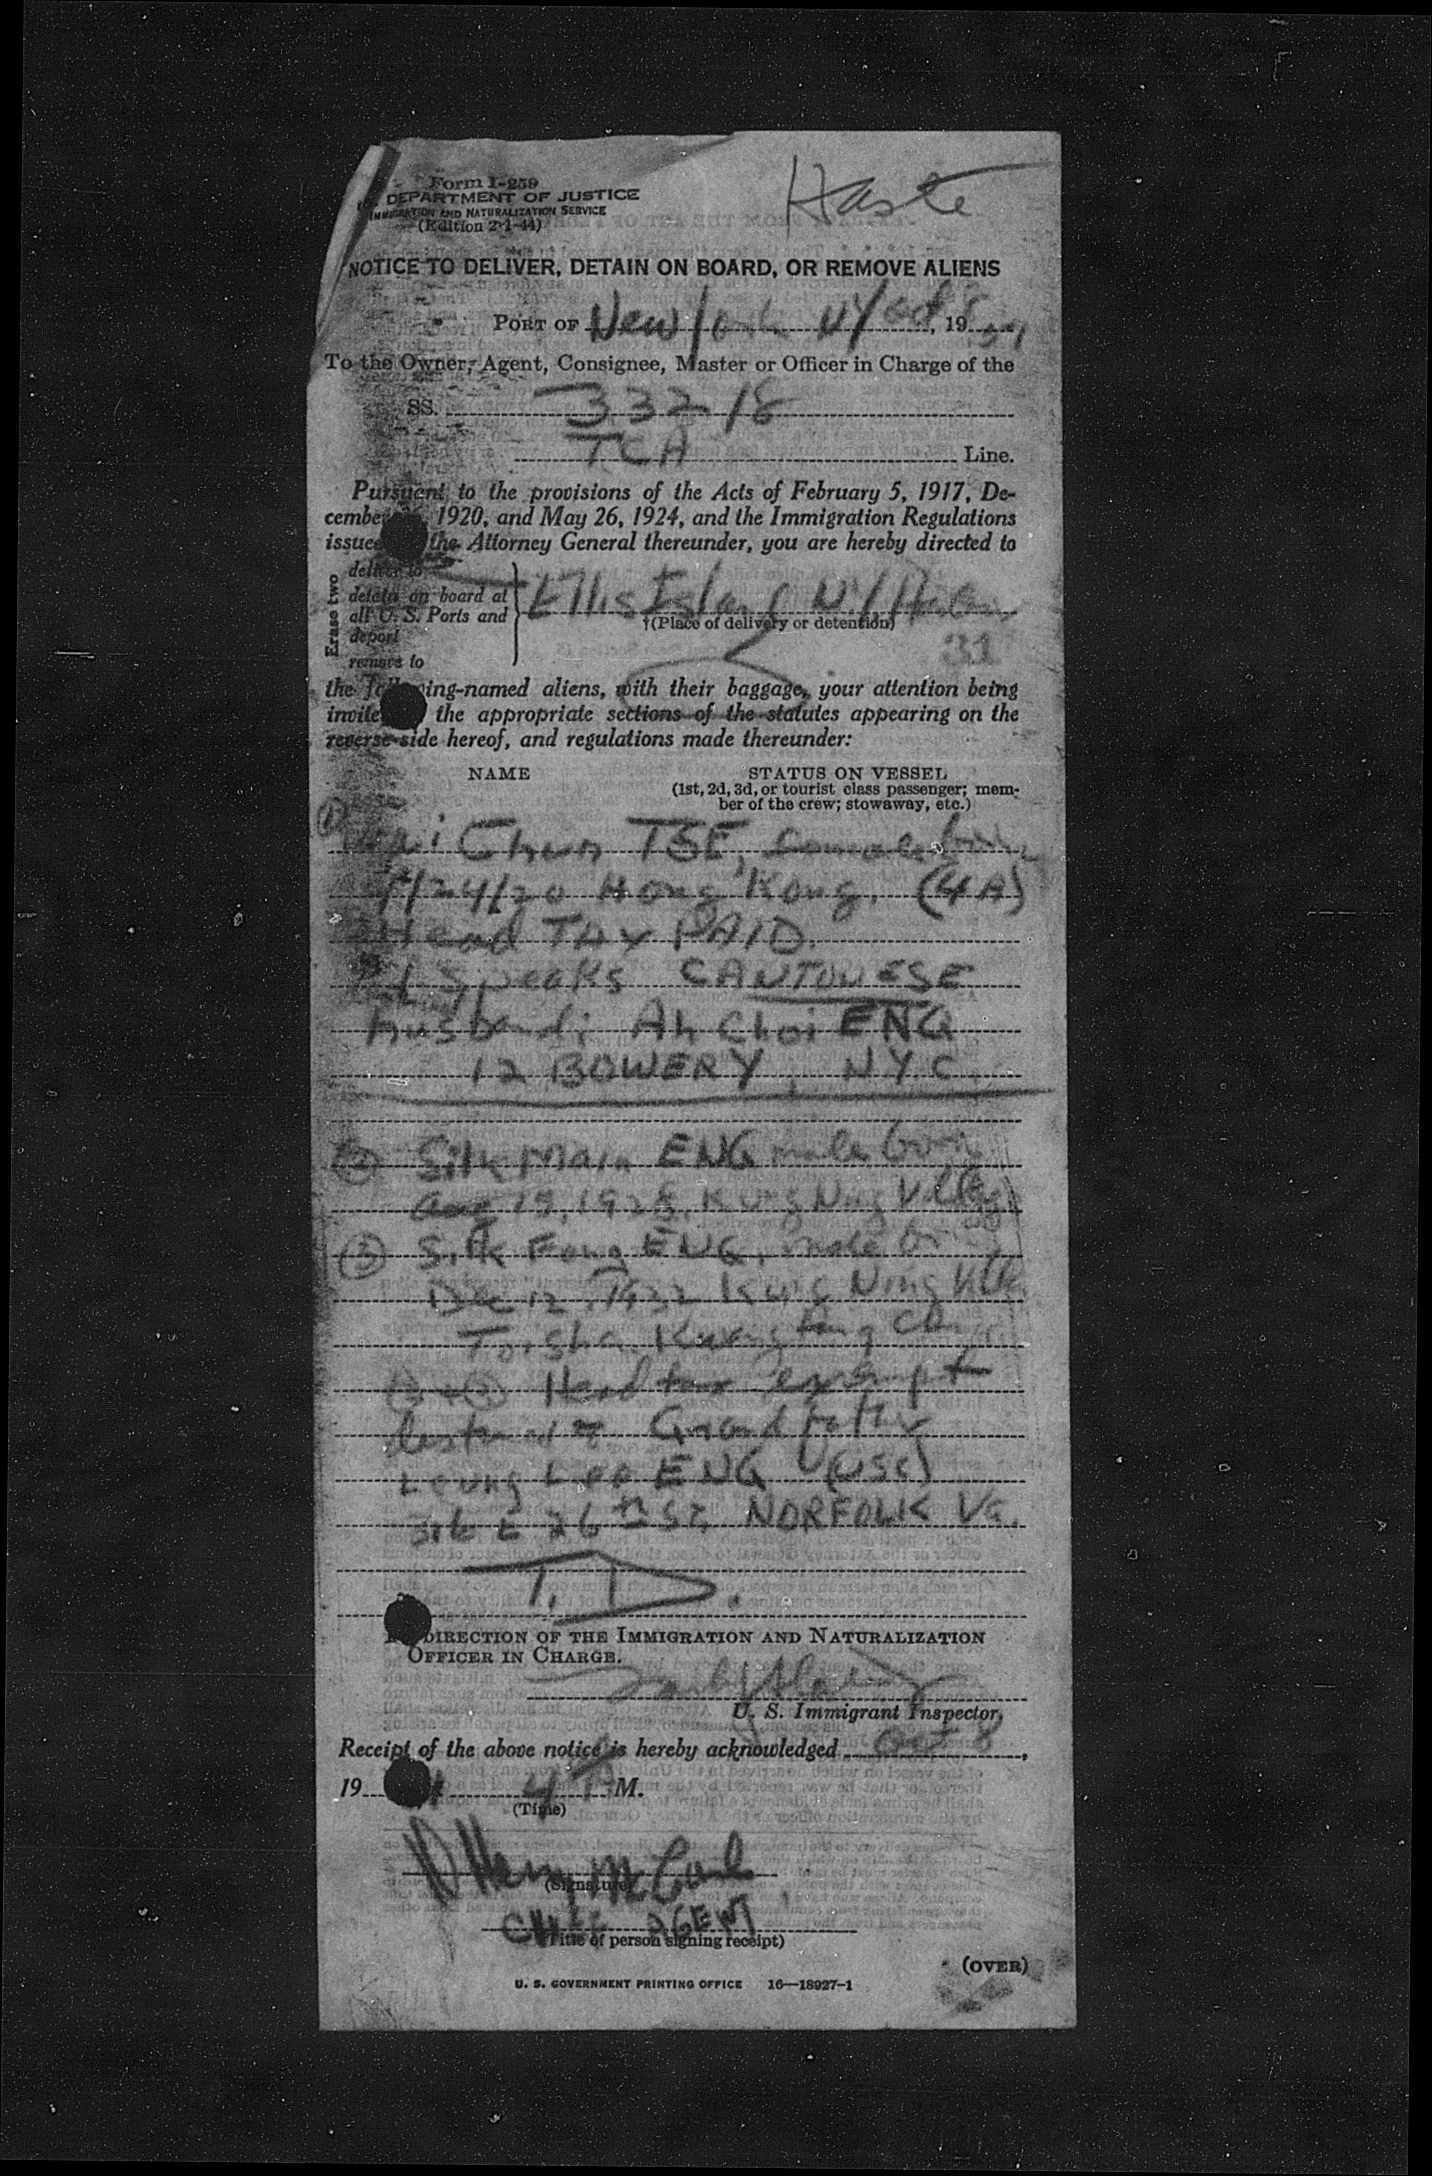 Haste
Form I-259
DEPARTMENT OF JUSTICE
IMMIGRATION AND NATURALIZATION SERVICE
(Edition 2-1-44)
NOTICE TO DELIVER, DETAIN ON BOARD, OR REMOVE ALIENS
PORT OF New York NY Oct 8, 19 51
To the Owner, Agent, Consignee, Master or Officer in Charge of the
SS. 332 18
TCA Line.
Pursuant to the provisions of the Acts of February 5, 1917, De-
cember 1920, and May 26, 1924, and the Immigration Regulations
issued the Attorney General thereunder, you are hereby directed to
Erase two
deliver to
detain on board at
all U. S. Ports and
deport
remove to
Ellis Island NY
†(Place of delivery or detention)
31
the following-named aliens, with their baggage, your attention being
invited the appropriate sections of the statutes appearing on the
reverse side hereof, and regulations made thereunder:
NAME STATUS ON VESSEL
(1st, 2d, 3d, or tourist class passenger; mem-
ber of the crew; stowaway, etc.)
(1)
Chun TSE, female born
/24/20 Hong Kong. (4A)
Head TAX PAID.
Speaks CANTONESE
Husband: Ah Choi ENG
12 BOWERY, NYC
(2) Silk Main ENG male born
Aug 19, 1928, Kung Ning Village
(3) Silk Fong ENG, male born
Dec 12, 1932 Kung Ning
Toisha Kwangtung
(2) + (3) Head tax exempt
destined to Grandfather
Leung Lee ENG (USC)
E 26th St, NORFOLK Va.
T. D.
DIRECTION OF THE IMMIGRATION AND NATURALIZATION
OFFICER IN CHARGE.
U. S. Immigrant Inspector.
Receipt of the above notice is hereby acknowledged Oct 8,
19 4 M.
(Time)
(Signature)
CHIEF AGENT
(Title of person signing receipt)
(OVER)
U. S. GOVERNMENT PRINTING OFFICE 16—18927-1